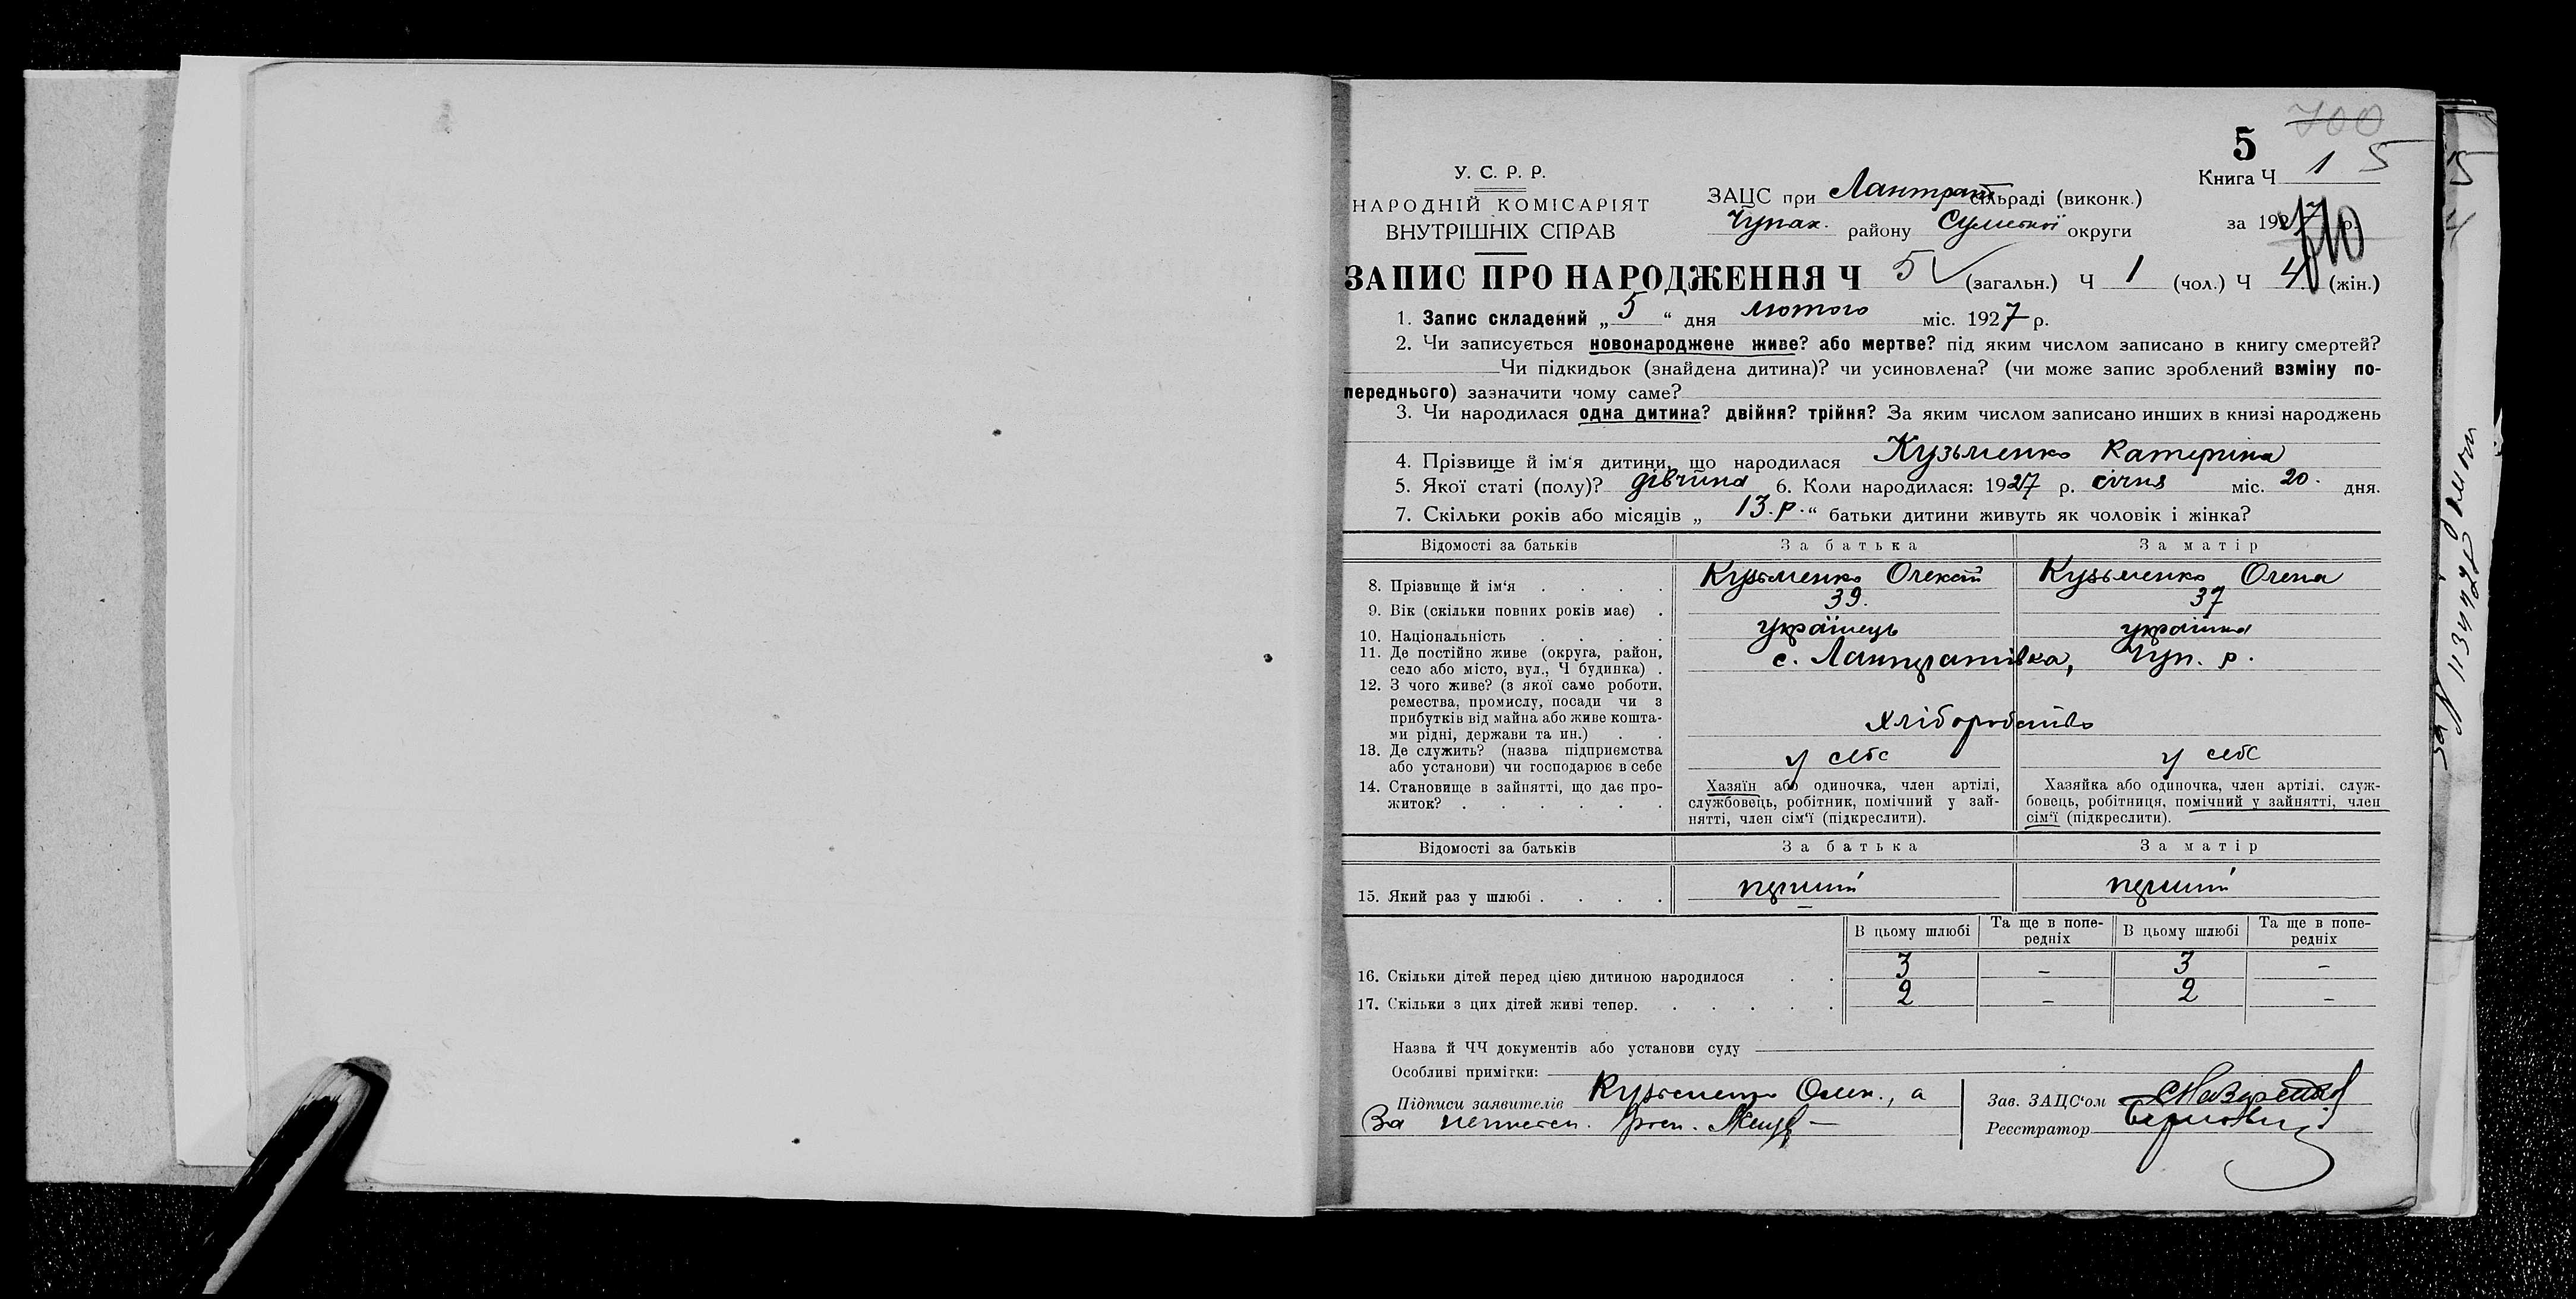 700
5
Книга Ч 1 5
У. С. Р. Р.
НАРОДНІЙ КОМІСАРІЯТ
ВНУТРІШНІХ СПРАВ
ЗАЦС при Лантрат сільраді (виконк.)
Чупах. району Сумської округи
за 1927 р.
ЗАПИС ПРО НАРОДЖЕННЯ Ч 5 (загальн.) Ч 1 (чол.) Ч 4 (жін.)
1. Запис складений „ 5 “ дня лютого міс. 1927 р.
2. Чи записується новонароджене живе? або мертве? під яким числом записано в книгу смертей?
Чи підкидьок (знайдена дитина)? чи усиновлена? (чи може запис зроблений взміну по-
переднього) зазначити чому саме?
3. Чи народилася одна дитина? двійня? трійня? За яким числом записано инших в книзі народжень
4. Прізвище й ім‘я дитини, що народилася Кузьменко Катерина
5. Якої статі (полу)? дівчина 6. Коли народилася: 1927 р. січня міс. 20. дня.
7. Скільки років або місяців „ 13. р. “ батьки дитини живуть як чоловік і жінка?
Відомості за батьків За батька За матір
8. Прізвище й ім‘я . . . . Кузьменко Олексій Кузьменко Олена
9. Вік (скільки повних років має) . 39. 37
10. Національність . . . . українець українка
11. Де постійно живе (округа, район,
село або місто, вул., Ч будинка) . с. Лантратівка, Чуп. р.
12. З чого живе? (з якої саме роботи,
ремества, промислу, посади чи з
прибутків від майна або живе кошта-
ми рідні, держави та ин.) . . Хліборобство
13. Де служить? (назва підприємства
або установи) чи господарює в себе у себе у себе
14. Становище в зайнятті, що дає про-
житок? . . . . . .
Хазяїн або одиночка, член артілі,
службовець, робітник, помічний у зай-
нятті, член сім‘ї (підкреслити).
Хазяйка або одиночка, член артілі, служ-
бовець, робітниця, помічний у зайнятті, член
сім‘ї (підкреслити).
Відомості за батьків За батька За матір
15. Який раз у шлюбі . . . . перший перший
В цьому шлюбі Та ще в попе- В цьому шлюбі Та ще в попе-
редніх редніх
16. Скільки дітей перед цією дитиною народилося . . 3 – 3 –
17. Скільки з цих дітей живі тепер. . . . . . 2 – 2 –
Назва й ЧЧ документів або установи суду
Особливі примітки:
Підписи заявителів Кузьменко Олек., а
За неписьмен.
Зав. ЗАЦС‘ом
Реєстратор